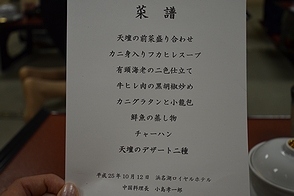 菜譜
天壇の前菜盛り合わせ
カニ身入りフカヒレスープ
有頭海老の二色仕立て
牛ヒレ肉の黒胡椒炒め
カニグラタンと小籠包
鮮魚の蒸し物
チャーハン
天壇のデザート二種
平成25年10月12日 浜名湖ロイヤルホテル
中国料理長 小島孝一郎